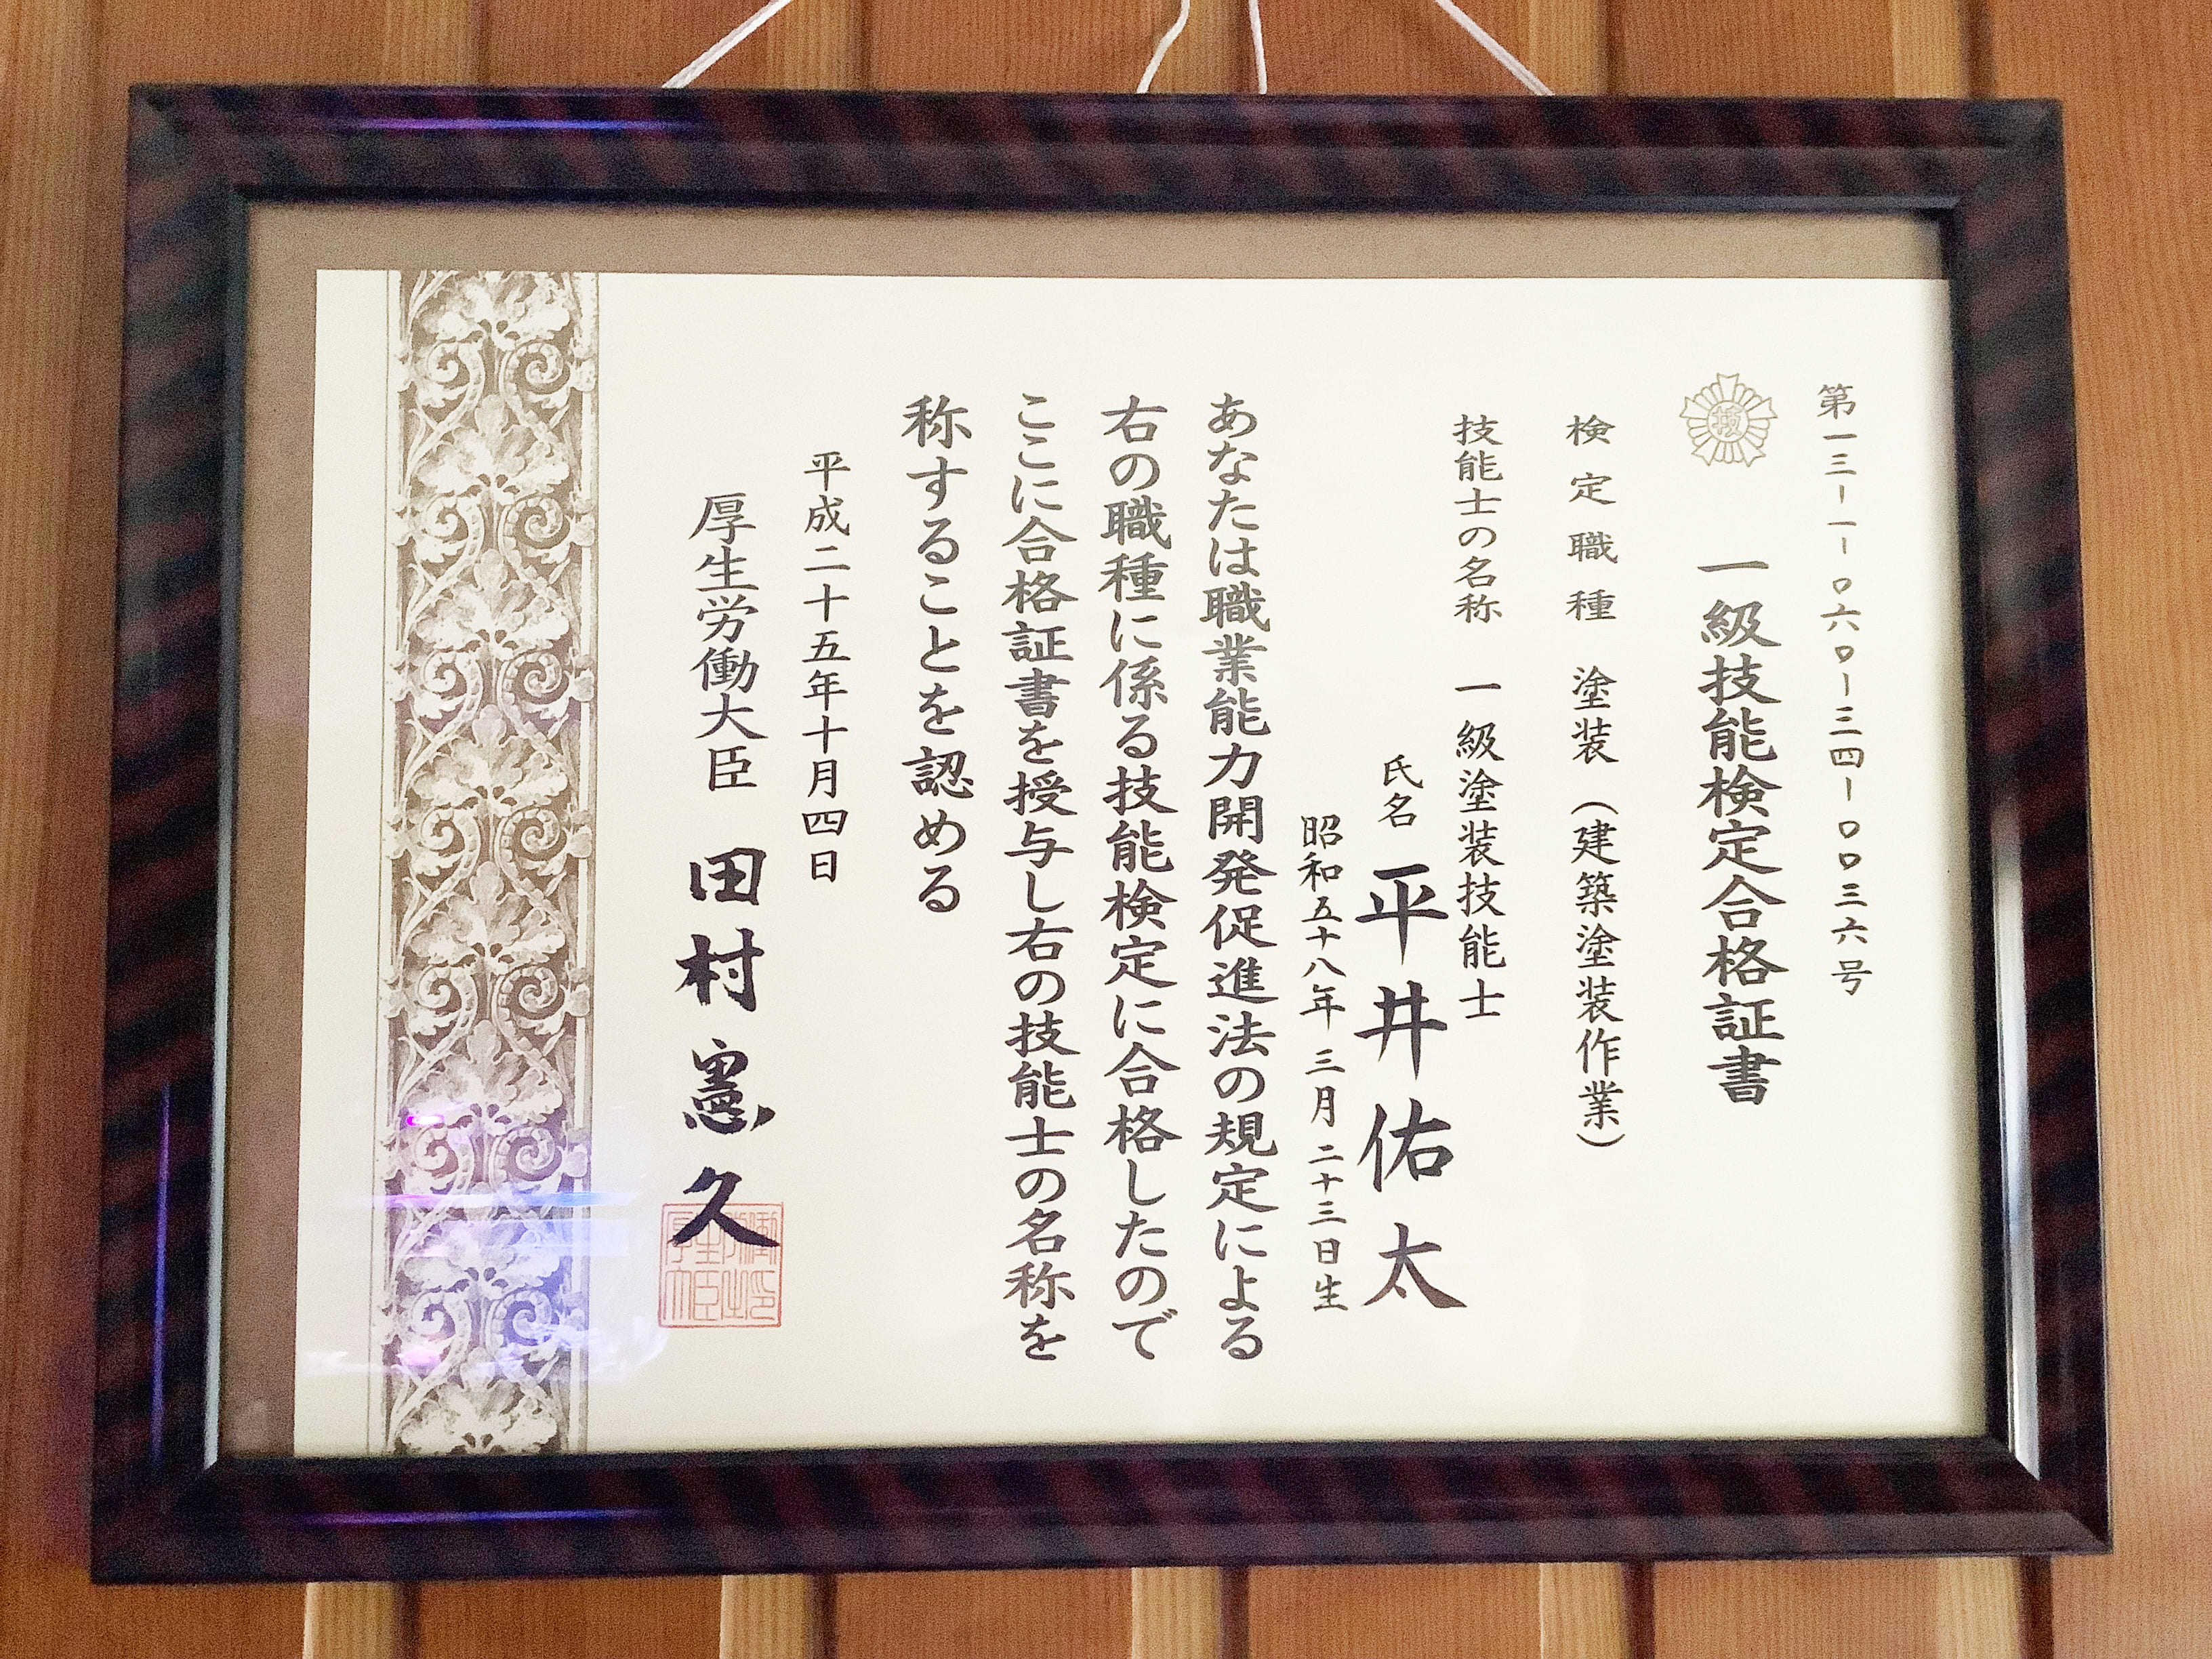 第一三-一-〇六〇-三四-〇〇三六号
技
一級技能検定合格証書
検定職種 塗装(建築塗装作業)
技能士の名称 一級塗装技能士
氏名 平井佑太
昭和五十八年三月二十三日生
あなたは職業能力開発促進法の規定による
右の職種に係る技能検定に合格したので
ここに合格証書を授与し右の技能士の名称を
称することを認める
平成二十五年十月四日
厚生労働大臣 田村憲久